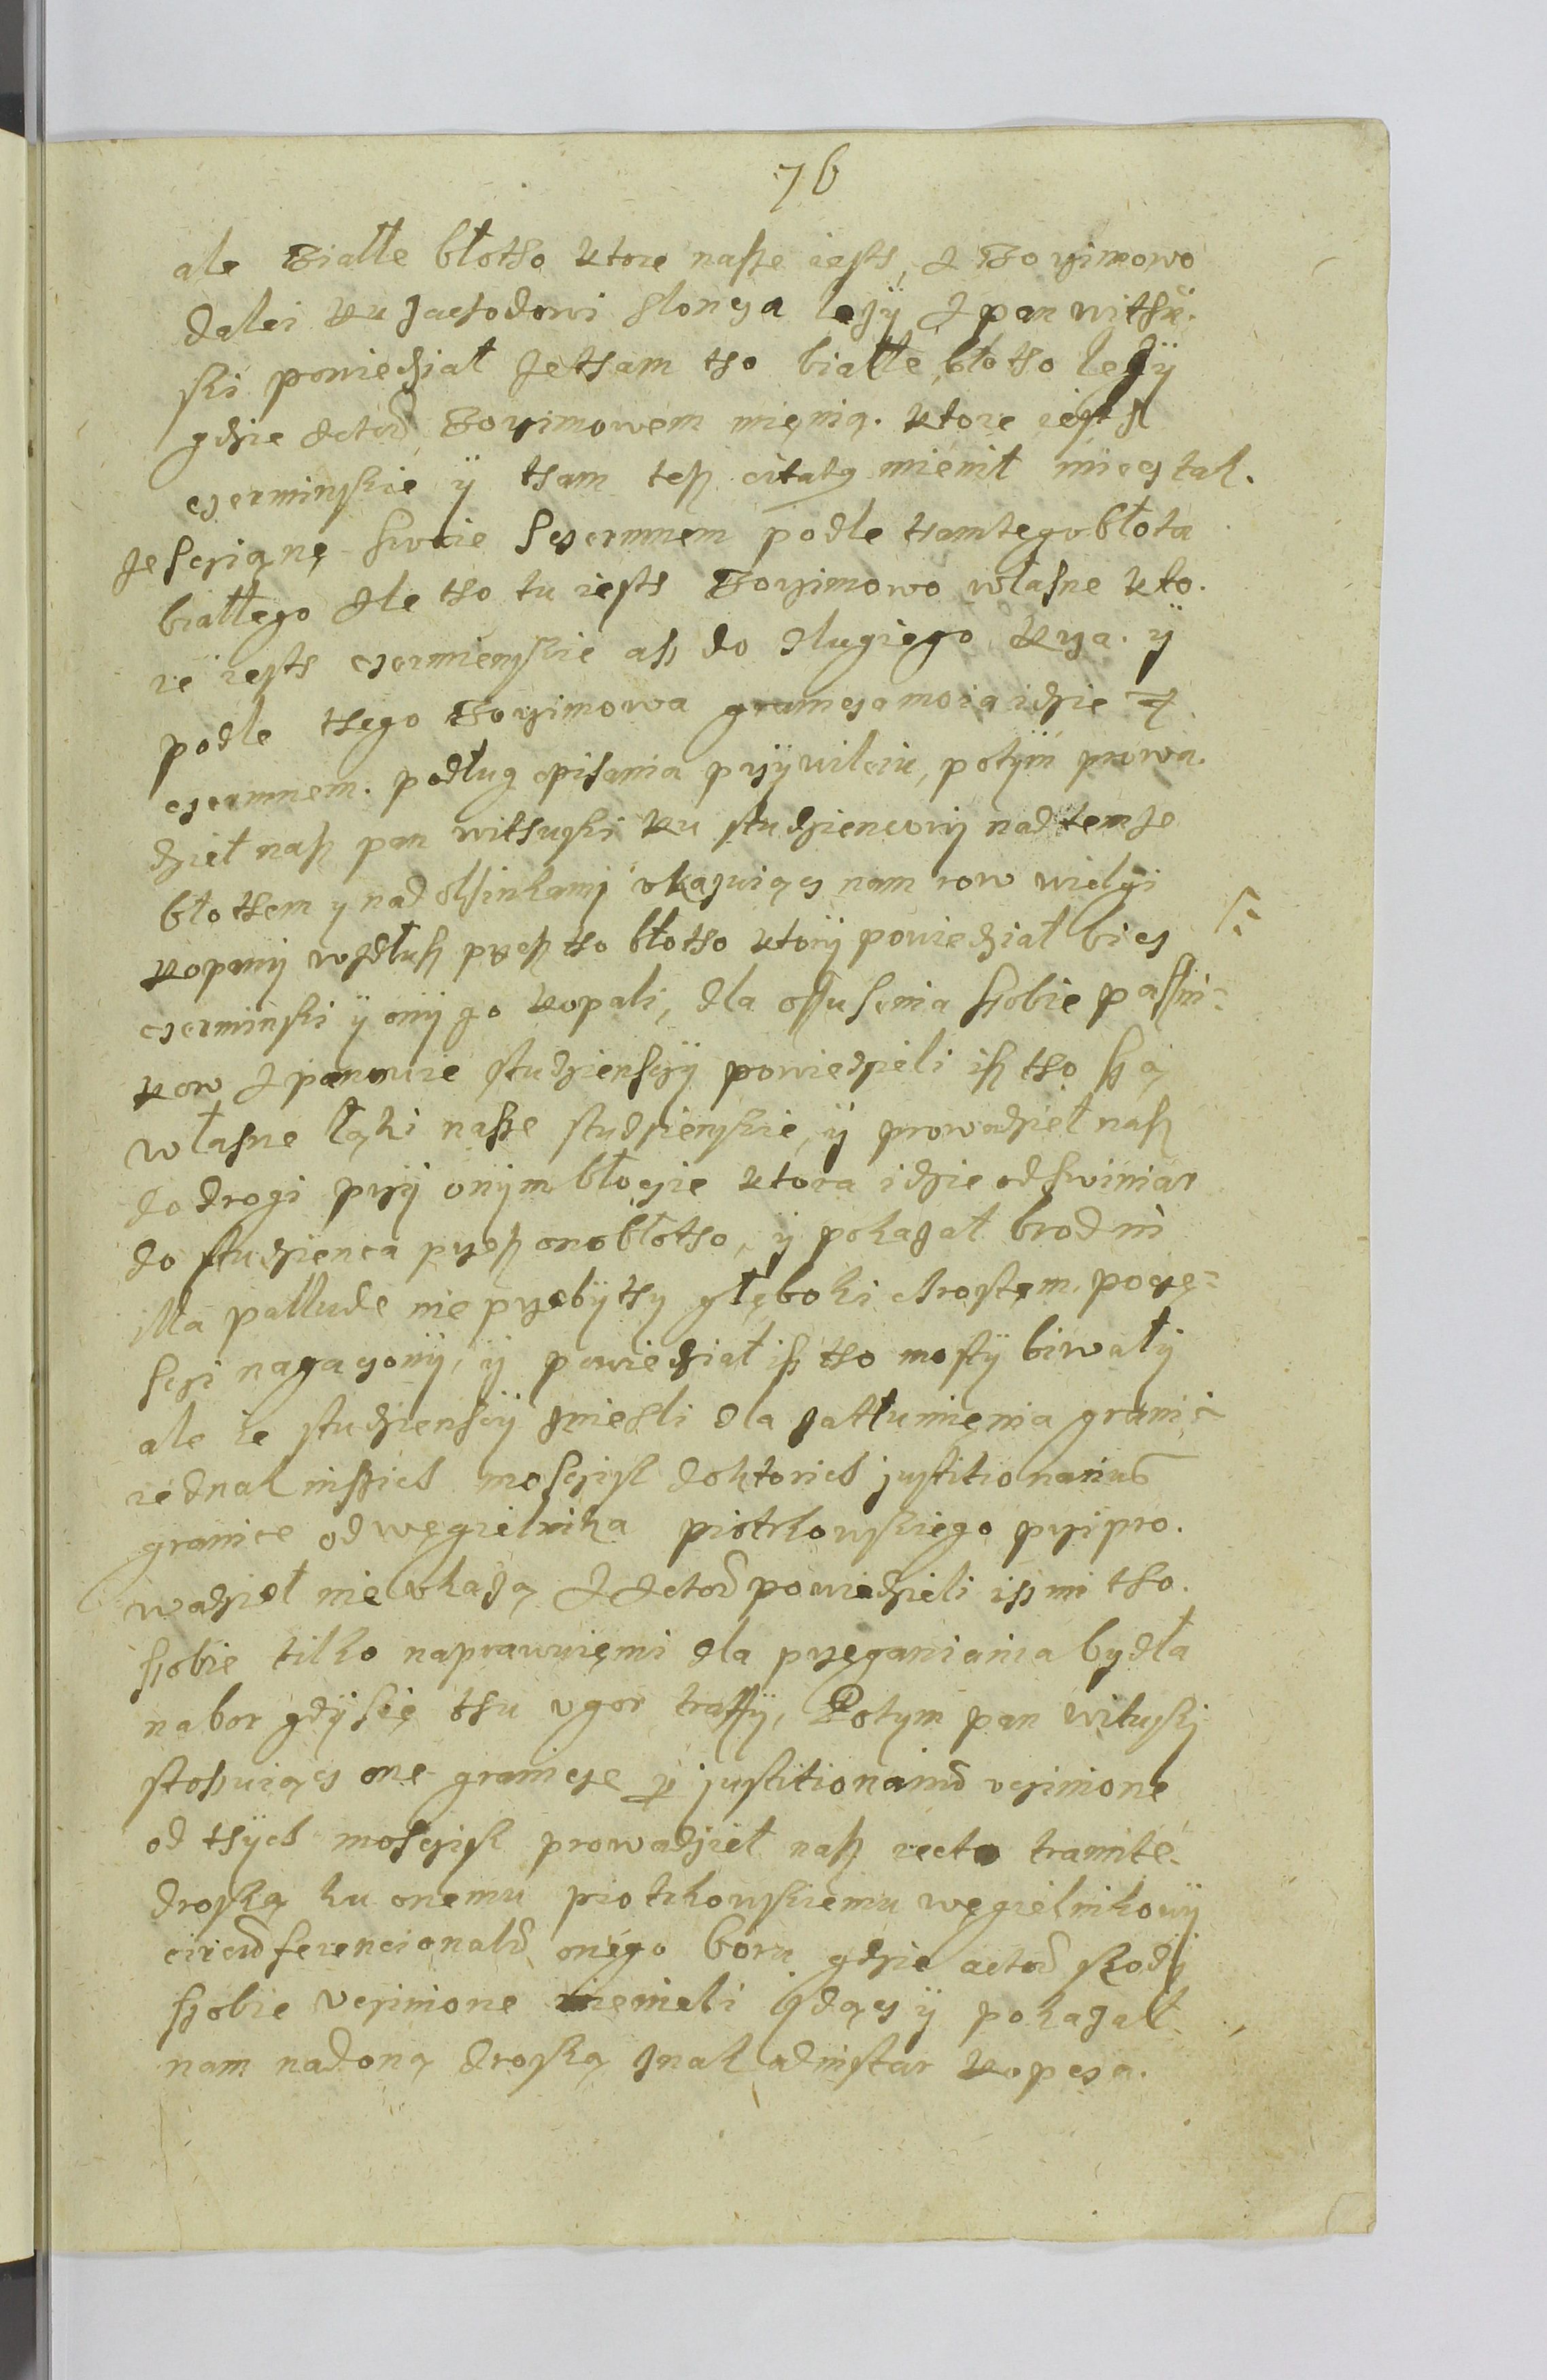 76
ale Białłe błotho ktore nasze iesth, I Boyimowo
dalei ku zachodowi slonca lezÿ I pan withu-
ski powiedział ze tham tho białłe błotho lezÿ
gdzie Actor Boyimowem mięnią. ktore iesth
czerminskie ÿ tham tesz citatą mienił mięcz tak.
ze scziąnę swoie sczermnem podle tamtego błota
białłego Ale tho tu iesth Boyimowo własne kto-
re iesth czermienskie asz do dlugiego krza. ÿ
podle thego Boyimowa gramcza moia idzie z
czermnem. podług opisania przÿwileiu, potÿm prowa-
dzieł nasz pan withuski ku studziencowÿ nad temze
błothem y nad olszinkamÿ vkazuiącz nam row wielgi
kopanÿ wzdłusz przesz tho błotho ktorÿ powiedział bicz
czerminski ÿ onÿ go kopali, dla ossusenia szobie pastwi-
kow I panowie studzienscÿ powiedzieli isz tho szą
własne łąki nasze studzienskie, ÿ prowadzieł nasz
do drogi przÿ onÿm błoczie ktora idzie od swiniar
do studzienca przesz ono błotho, ÿ pokazał brod in
illa pallude nie przebÿthy głęboki chrostem. poczę-
sczi nagaczonÿ, ÿ powiedział isz tho mostÿ biwałÿ
ale ie studzienscÿ zniesli dla zatłumięnia granic
iednak inszich mosczisk doktorich justitionarius
granice od węgielnika piotrkowskiego przipro-
wadzieł nie vkazą I Actor powiedzieli isz mi tho
szobie tilko naprawuięmi dla przęganiania bydła
na bor gdÿ się thu vgor traffÿ, Potym pan wituskj
stossuiącz one granicze per justitionarium vczinione
od thÿch mosczisk prowadzieł nasz recto tramite
droską ku onemu piotrkowskiemu węgielnikowÿ
circumferencionalem onego boru gdzie actor skodÿ
szobie vczinione mienieli idącz ÿ pokazał
nam nad oną droską znak ad instar kopcza.